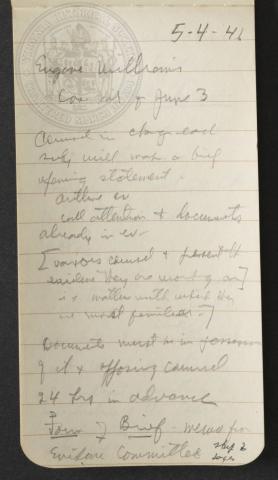 5-4-46
Eugene Williams
Con out of June 3
Counsel in charge each
subj will make a brief
opening statement
outline ev
call attention to documents
already in ev-
[various counsel to present the
evidence they are working on]
i.e. matters with which they
are most familiar-]
Documents must be in possession
of ct & opposing counsel
24 hrs in advance
Form of Brief - memo for
Evidence Committee